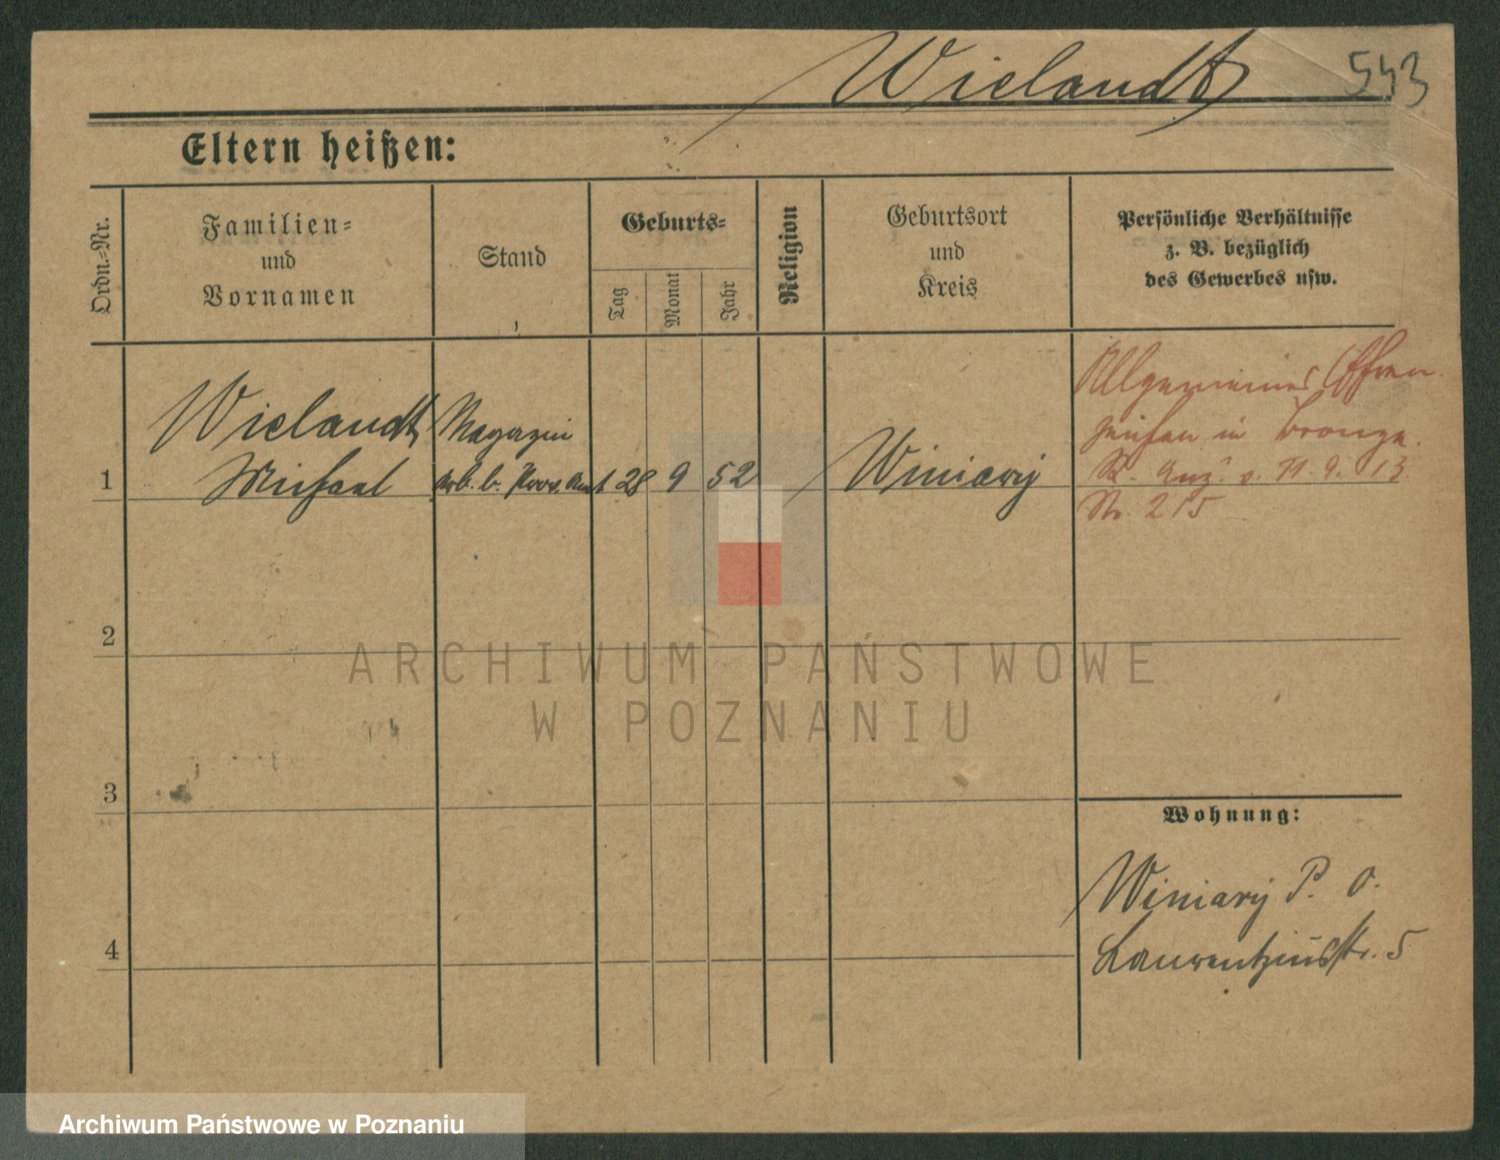 Wielandt 543
Eltern heißen:
Ordn.-Nr.
Familien-
und
Vornamen
Stand
Geburts-
Tag
Monat
Jahr
Religion
Geburtsort
und
Kreis
Persönliche Verhältnisse
z. B. bezüglich
des Gewerbes usw.
1
Wielandt
Michael
Magazin
arb. b. Prov. Amt
28 9 52
Winiary
Allgemeines Ehren
zeichen in Bronze.
Anz. v. 11.9.13.
Nr. 215
2
3
4
Wohnung:
Winiary P. O.
Laurentziusstr. 5
ARCHIWUM PAŃSTWOWE
W POZNANIU
Archiwum Państwowe w Poznaniu